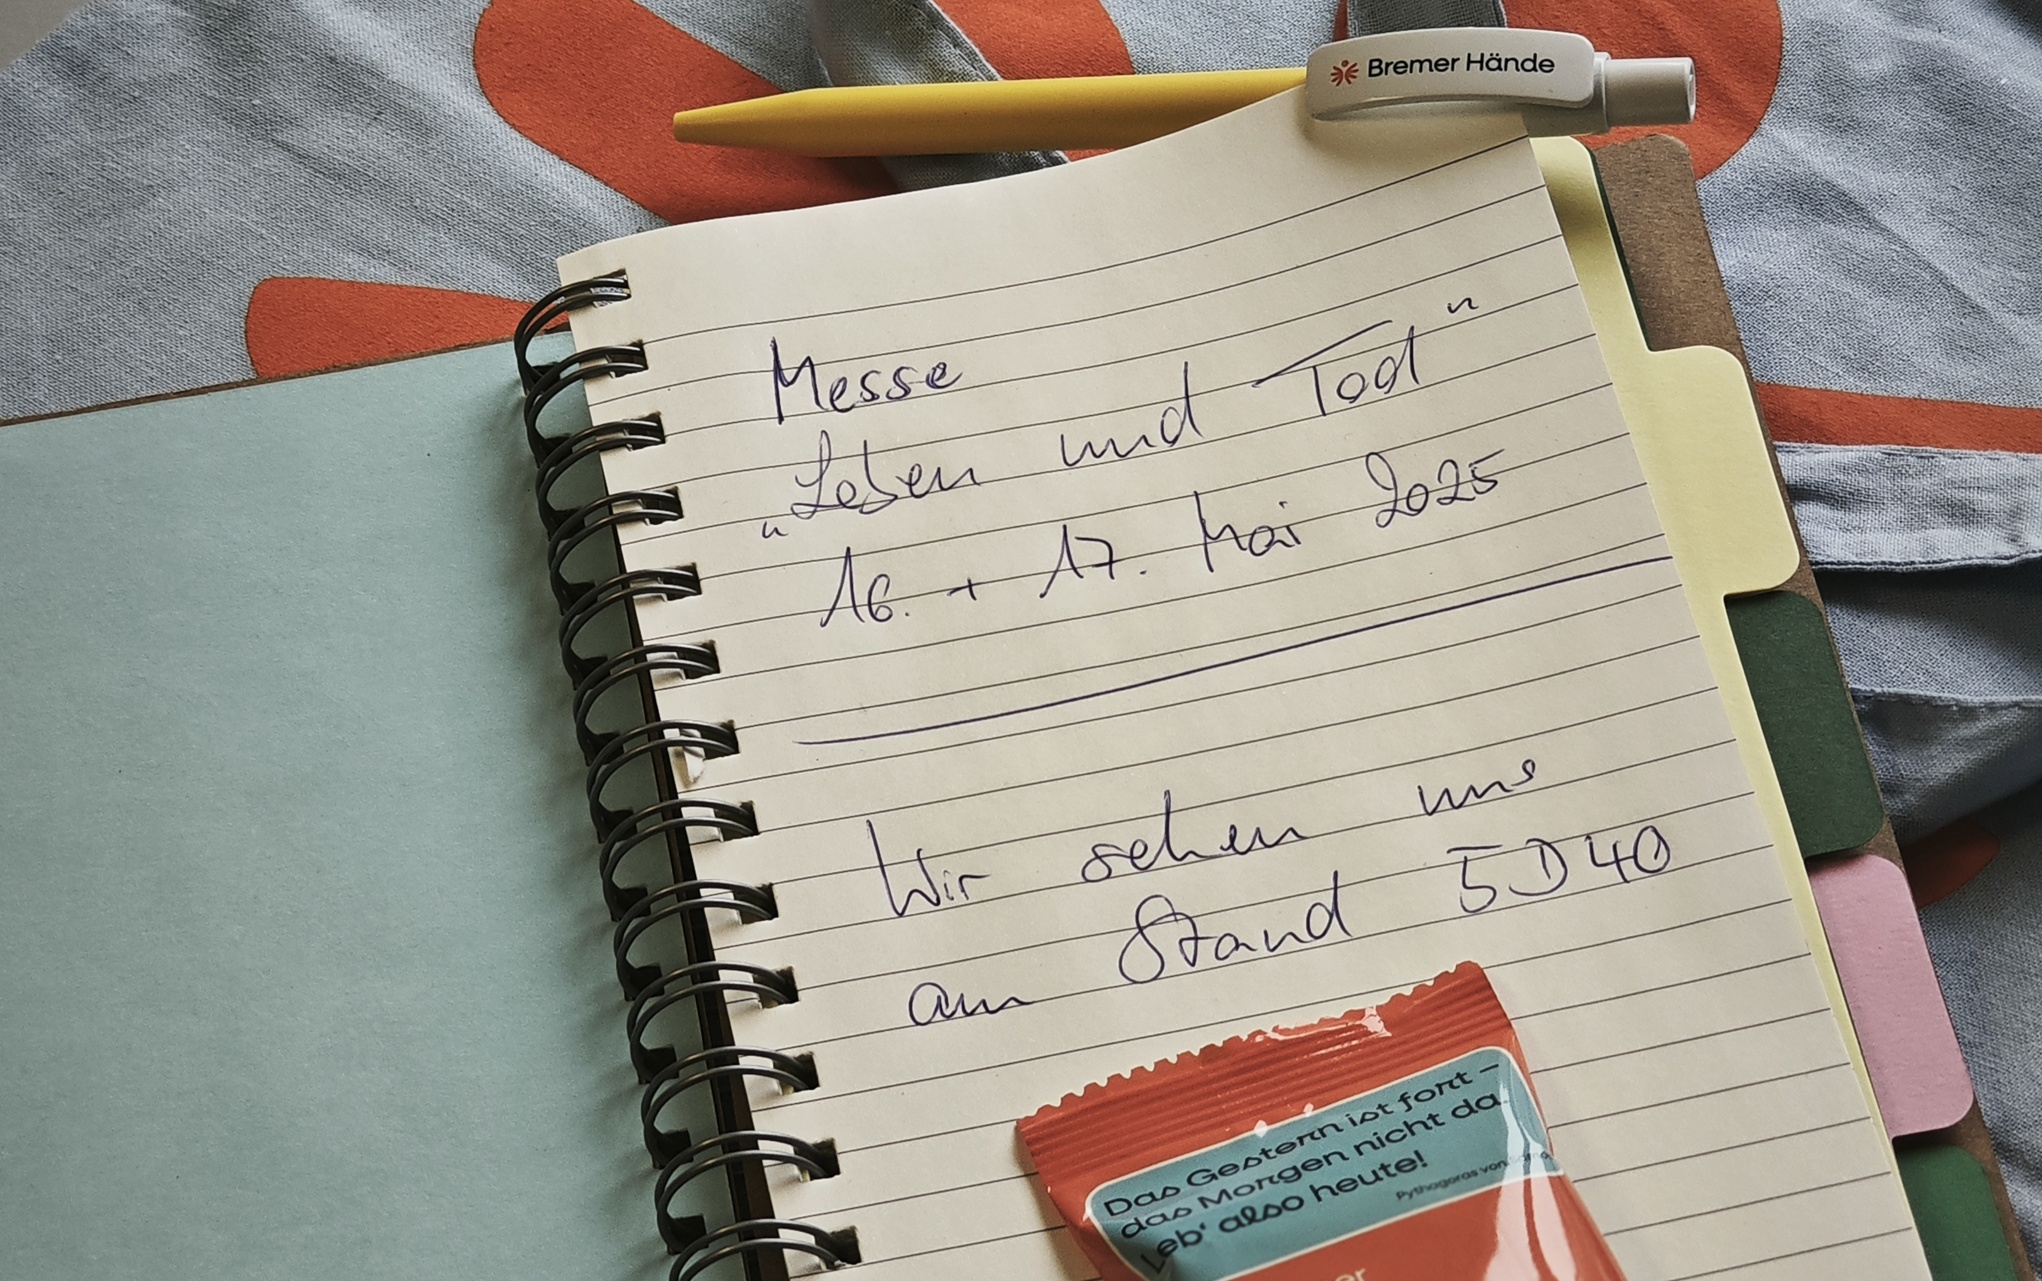 Bremer Hände
Messe
„Leben und Tod"
16. + 17. Mai 2025
Wir sehen uns
am Stand 5D40
Das Gestern ist fort –
das Morgen nicht da.
Leb' also heute!
Pythagoras von